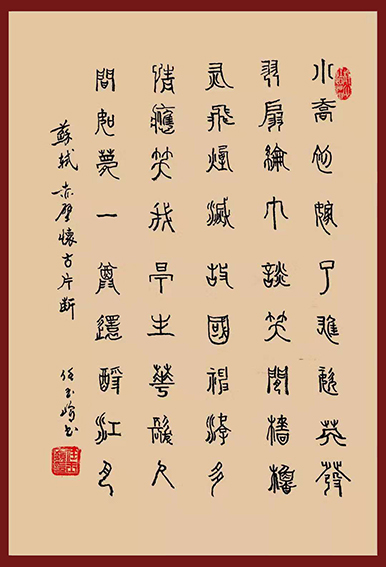 小喬初嫁了雄姿英發
羽扇綸巾談笑間檣櫓
灰飛煙滅故國神遊多
情應笑我早生華髮人
間如夢一尊還酹江月
蘇軾赤壁懷古片斷
任玉书